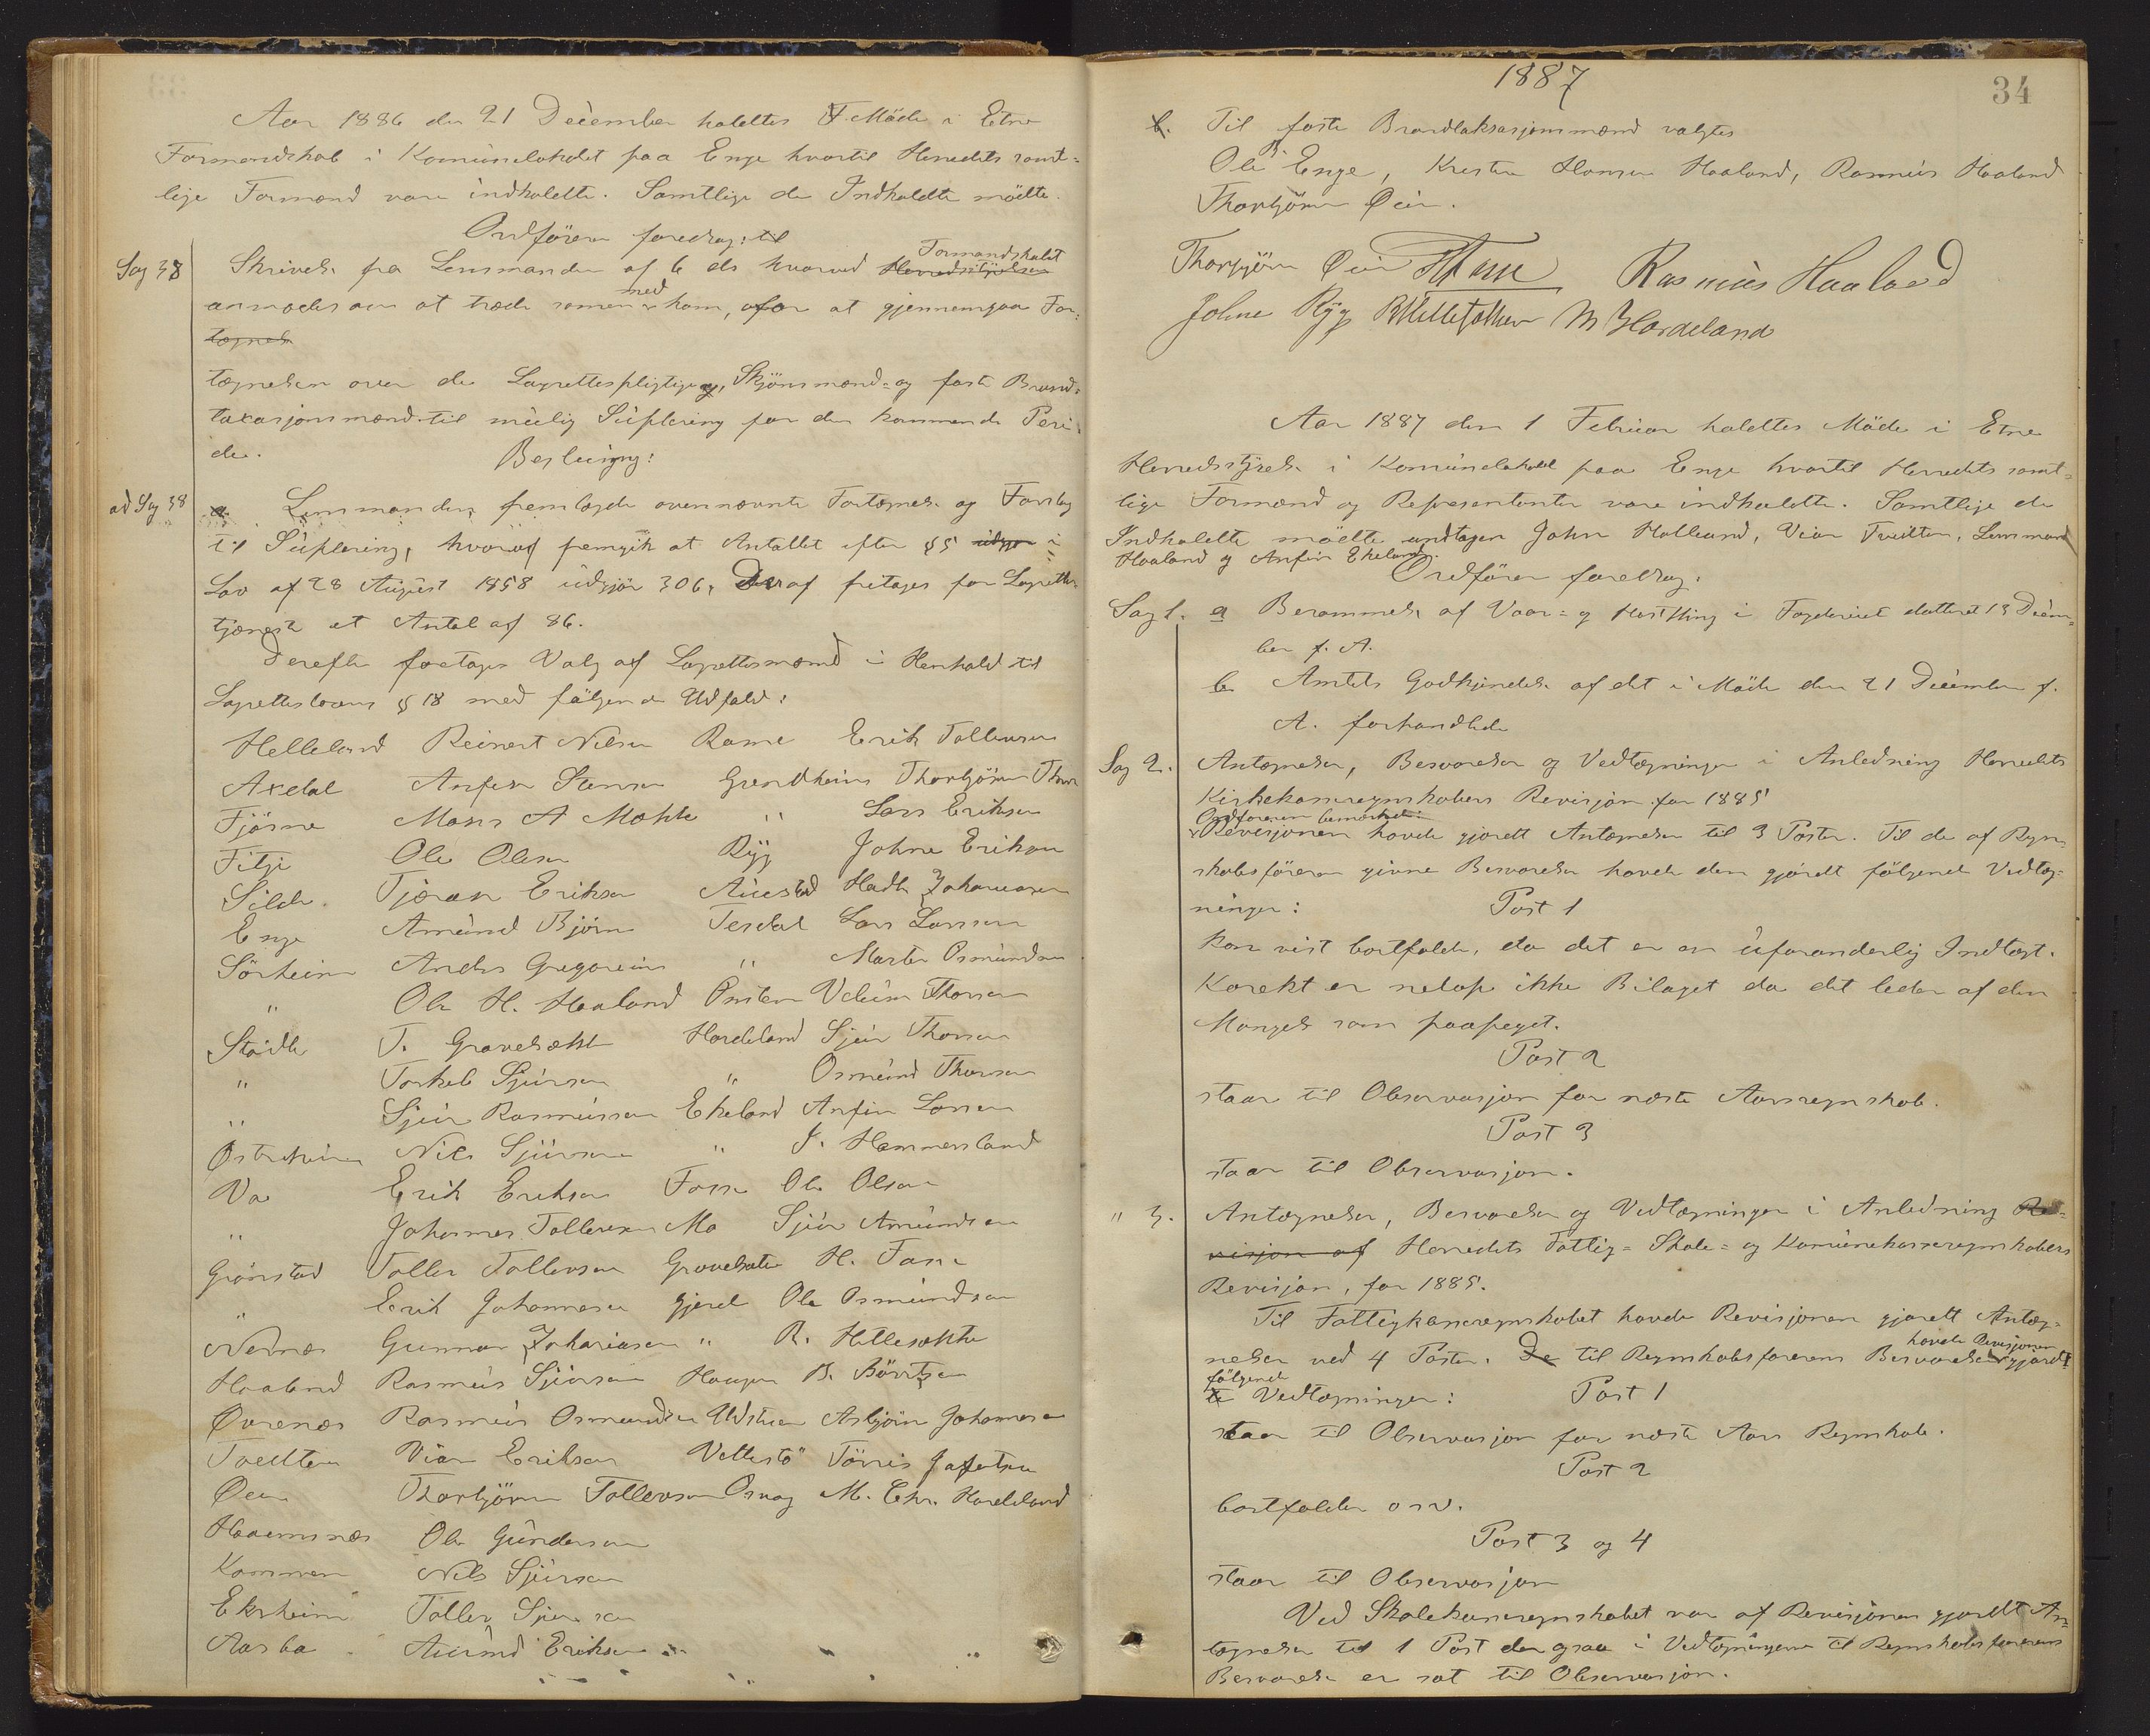 Aar 1886 den 21 December holdtes F. Møde i Etne
Formandskab i Komunelokalet paa Enge hvortil Herredets samt-
lige Formænd vare indkaldte. Samtlige de Indkaldte mødte.
Ordføreren foredrog: til
Sag 38 Skrivelse fra Lensmanden af 6 ds hvorved Herredsstyrelsen Formandskabet
anmodes om at træde sammen med ham, ofor at gjennemgaa For-
tegnels
tegnelsen over de Lagrettespligtige og, Skjønsmænd- og faste Brand-
taxasjonsmænd til mulig Suplering for den kommende Peri-
de. Beslutning:
ad Sag 38 a. Lensmanden fremlagde ovennævnte Fortegnelse og Forslag
til Suplering, hvoraf fremgik at Antallet efter § 5 udgjør i
Lov af 28 August 1858 udgjør 306, Deraf fritages for Lagrette-
tjeneste et Antal af 86.
Derefter foretages Valg af Lagrettesmænd i Henhold til
Lagretteslovens § 18 med følgende Udfald:
Helleland Reinert Nilsen Rame Erik Tollevsen
Axdal Anfin Stensen Grindheim Thorbjørn Thor
Fjøsne Mons A Mokle " Lars Eriksen
Fitje Ole Olsen Ryg Johne Erikson
Silde Tjeran Eriksen Austad Hadle Johannesen
Enge Amund Bjørn Tesdal Lars Larsen
Sørheim Anders Gregorius " Marten Osmundsen
" Ole H. Haaland Ørsten Velum Thorsen
Stødle T. Gravelsæter Hardeland Sjur Thorsen
" Torkel Sjursen " Osmund Thorsen
" Sjur Rasmussen Ekeland Anfin Larsen
Østreheim Nils Sjursen " J. Hammersland
Va Erik Eriksen Fosse Ole Olson
" Johannes Tollevsen Mo Sjur Amundsen
Grønstad Tollev Tollevsen Gravelsæter H. Fosse
" Erik Johannesen Gjerd Ole Osmundsen
Nernes Gunnar Johannesen " R. Hillesøkke
Haaland Rasmus Sjursen Haugen B. Børretsen
Øvrenæs Rasmus Osmundsen Udstuen Asbjørn Johannesen
Tvedten Vier Eriksen Vettestø Tørris Jafetsen
Øen Thorbjørn Tollevsen Osnag M. Chr. Hardeland
Haaemsnes Ole Gundersen
Kammen Nils Sjursen
Ekrheim Tollev Sjursen
Aasba Aamund Eriksen
1887
34
b. Til faste Brandtaksasjonsmænd valgtes
Ole B. Enge, Kristen Hansen Haaland, Rasmus Haaland
Thorbjørn Øein.
Thorbjørn Øein H Fosse Rasmus Haaland
Johne Ryg R Hillesøkken M Hardeland
Aar 1887 den 1 Februar holdtes Møde i Etne
Herredsstyrelse i Komunelokalet paa Enge hvortil Herredets samt-
lige Formænd og Representanter vare indkaldte. Samtlige de
Indkaldte mødte undtagen John Halleland, Vier Tvedten, Lensmand
Haaland og Anfin Ekeland.
Ordføreren foredrog:
Sag 1. a Berammelse af Vaar- og Høstthing i Fogderiet dateret 13 Decem-
ber f. A.
b. Amtets Godkjendelse af det i Møde den 21 December f.
A. forhandlede
Sag 2. Antegnelser, Besvarelser og Vedtegninger i Anledning Herredets
Kirkekasseregnskabers Revisjon for 1885
Ordføreren bemærkede:
Revisjonen havde gjordt Antegnelser til 3 Poster. Til de af Regn-
skabsføreren givne Besvarelser havde den gjordt følgende Vedteg-
ninger: Post 1
kan vist bortfalde, da det er en uforanderlig Indtægt.
Korekt er netop ikke Bilaget da det leder af den
Mangel som paapeget.
Post 2
staar til Observasjon for næste Aarsregnskab.
Post 3
staar til Observasjon.
" 3. Antegnelser, Besvarelser og Vedtegninger i Anledning Re-
visjon af Herredets Fattig- Skole- og Komunekasseregnskabers
Revisjon, for 1885.
Til Fattigkasseregnskabet havde Revisjonen gjordt Anteg-
nelser ved 4 Poster. De til Regnskabsførerens Besvarelser havde Revisjonen gjordt
følgende
te Vedtegninger: Post 1
staar til Observasjon for næste Aars Regnskab.
Post 2
bortfalder osv.
Post 3 og 4
staar til Observasjon
Ved Skolekasseregnskabet var af Revisjonen gjordt An-
tegnelse til 1 Post der ogsaa i Vedtegningerne til Regnskabsførerens
Besvarelse er sat til Observasjon.